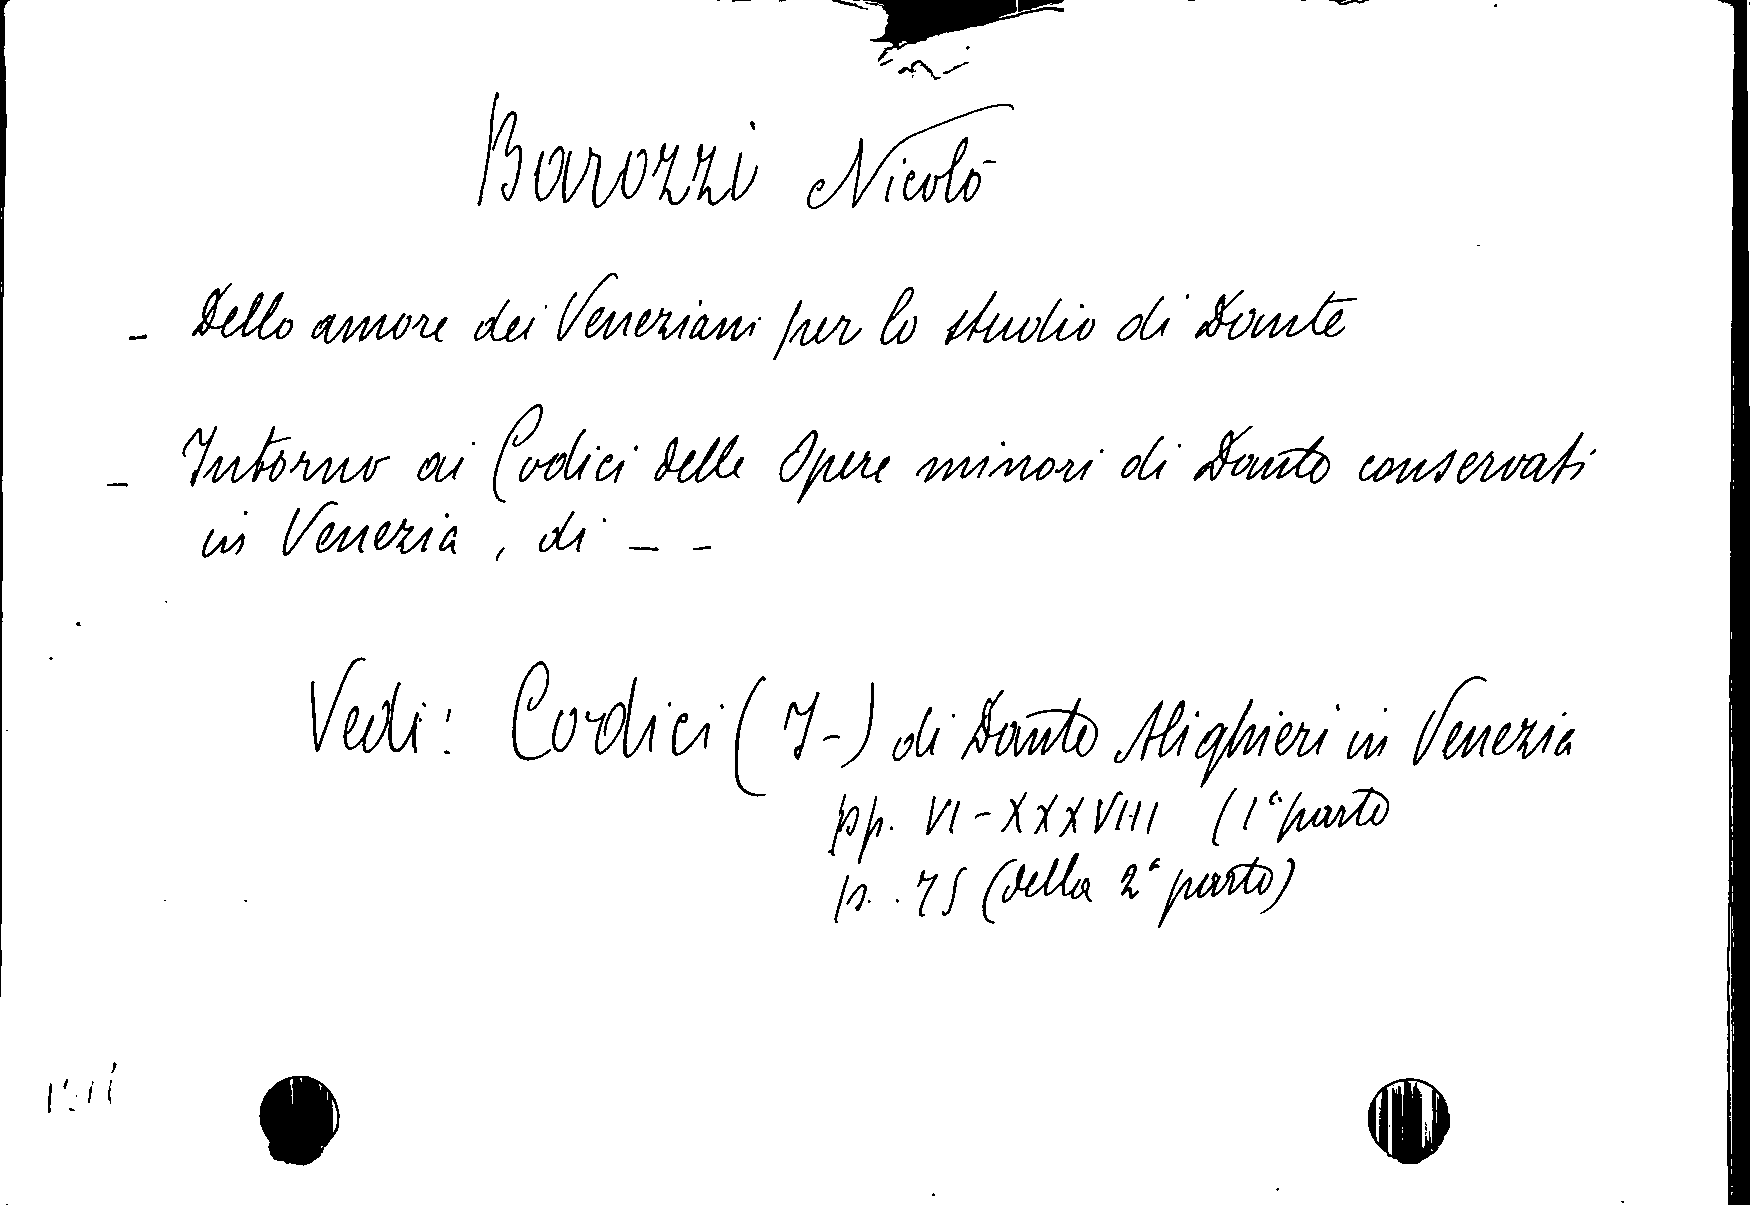 Barozzi Nicolò
- Dello amore dei Veneziani per lo studio di Dante
- Intorno ai Codici delle Opere minori di Dante conservati
in Venezia, di - -
Vedi: Codici (I-) di Dante Alighieri in Venezia
pp. VI-XXXVIII (1ª parte
p. 75 (della 2ª parte)